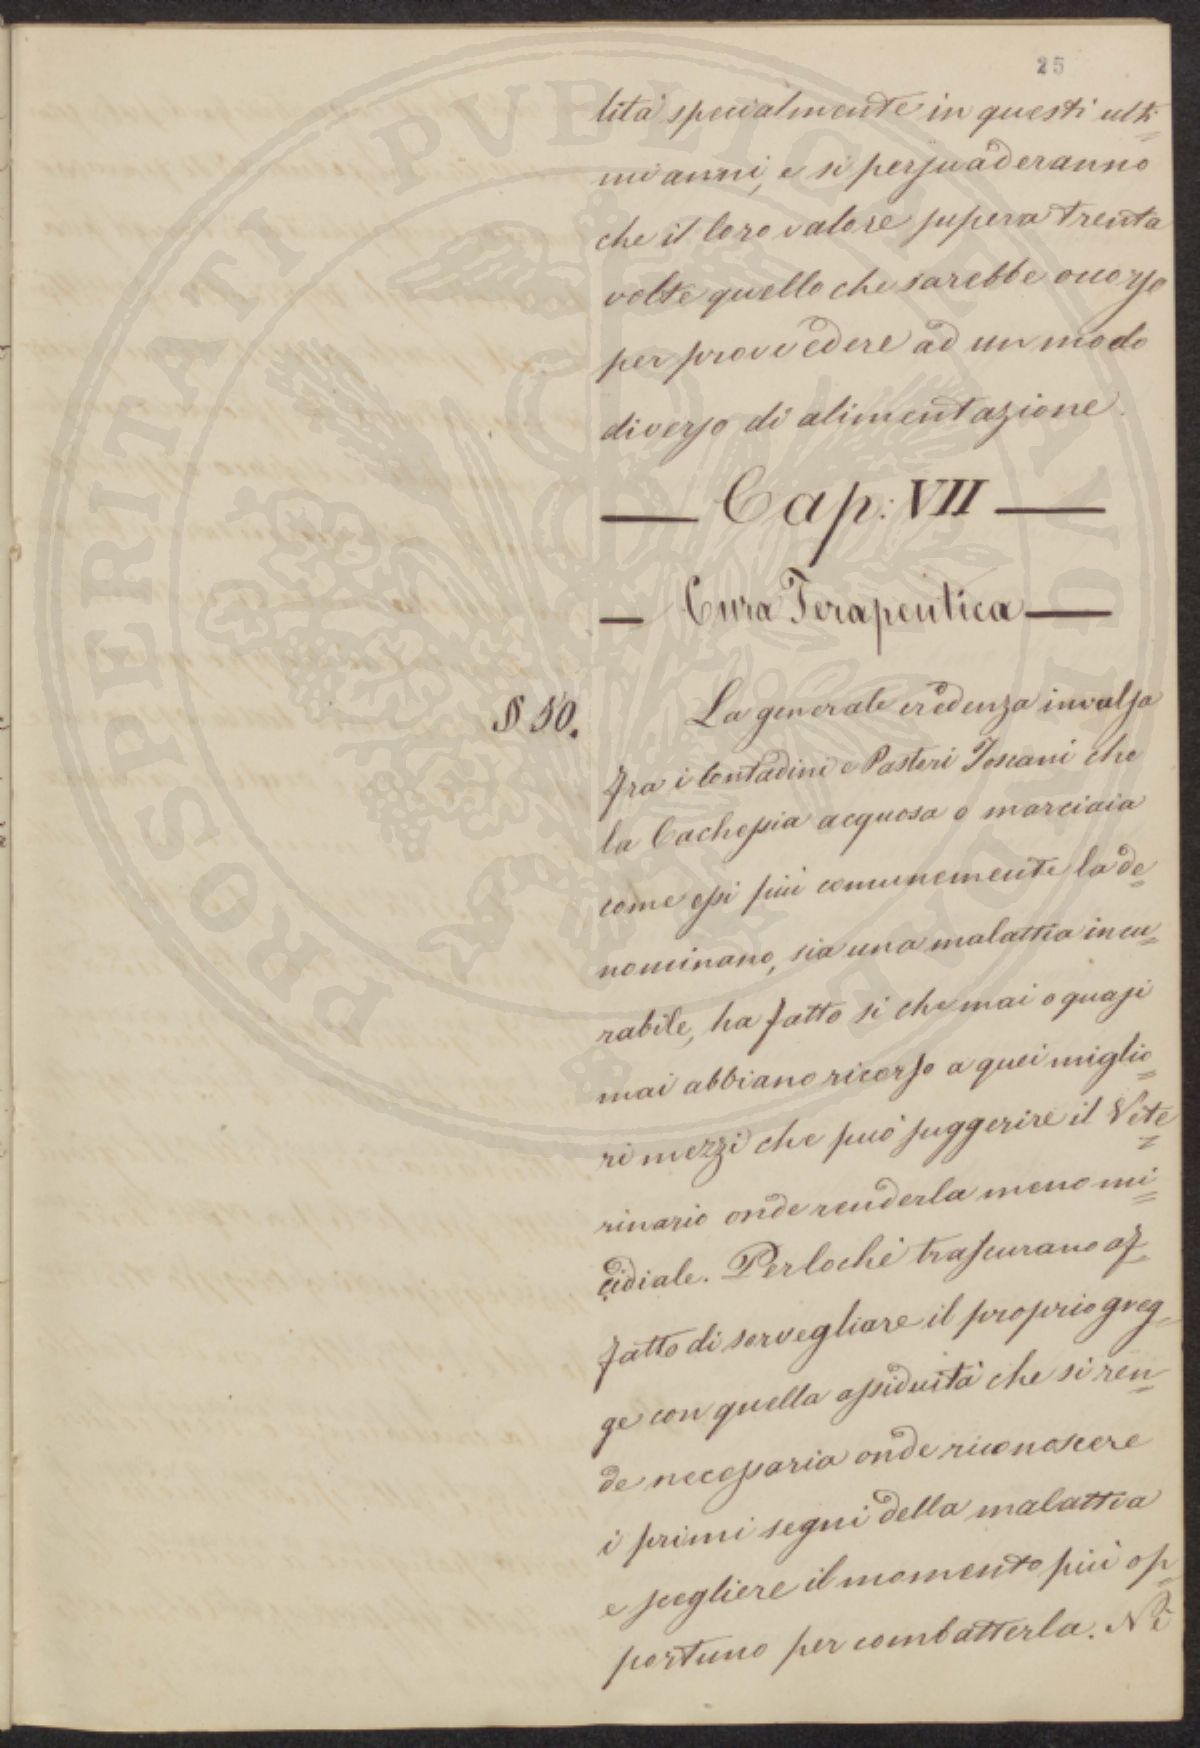 25
lità specialmente in questi ulti=
mi anni, e si persuaderanno
che il loro valore supera trenta
volte quello che sarebbe occorso
per provvedere ad un modo
diverso di alimentazione.
— Cap: VII —
— Cura Terapeutica —
§ 50. La generale credenza invalsa
fra i Contadini e Pastori Toscani che
la Cachessia acquosa o marciaia
come essi più comunemente la de=
nominano, sia una malattia incu=
rabile, ha fatto si che mai o quasi
mai abbiano ricorso a quei miglio=
ri mezzi che può suggerire il Vete=
rinario onde renderla meno mi=
cidiale. Perlochè trascurano af=
fatto di sorvegliare il proprio greg=
ge con quella assiduità che si ren=
de necessaria onde riconoscere
i primi segni della malattia
e scegliere il momento più op=
portuno per combatterla. Nè
PROSPERITATI PVBLICAE